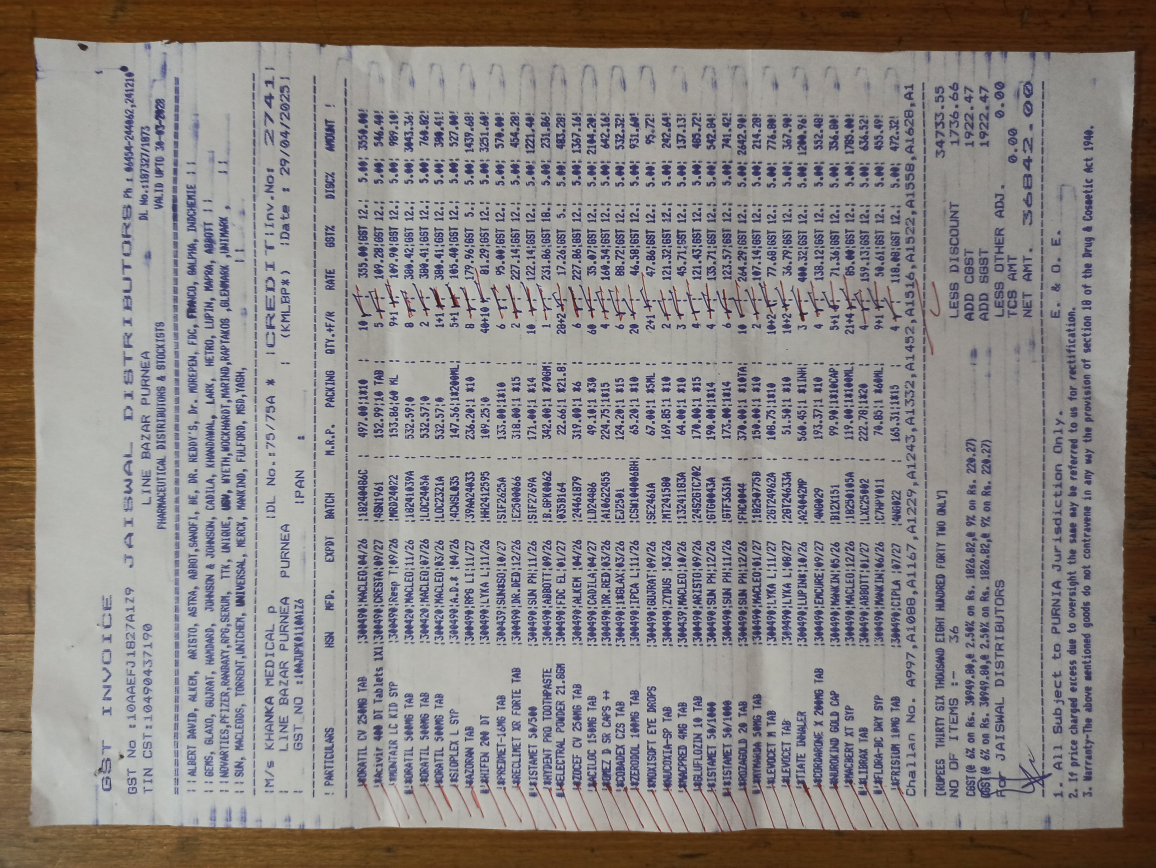 GST INVOICE
GST No :10AAEFJ1827A1Z9 JAISWAL DISTRIBUTORS Ph : 06454-244062,241210
TIN CST:10490437190 LINE BAZAR PURNEA DL No.:187327/1873
PHARMACEUTICAL DISTRIBUTORS & STOCKISTS VALID UPTO 30-03-2028
!! ALBERT DAVID, ALKEM, ARISTO, ASTRA, ABBOT, SANOFI, BE, DR. REDDY'S, Dr. MOREPEN, FDC, FRANCO, GALPHA, INDCHEMIE !!
!! GEMS, GLAXO, GUJRAT, HANDARD, JOHNSON & JOHNSON, CADILA, KHANDAWAL, LARK, HETRO, LUPIN, MAPRA, ABBOTT !!
!NOVARTIES,PFIZER,RANBAXY,RPG,SERUM, TTK, UNIQUE, WYETH,WOCKHARDT,MARIND,RAPTAKOS ,GLENMARK ,UNIMARK ,
!! SUN, MACLEODS, TORRENT,UNICHEM, UNIVERSAL, MERCK, MANKIND, FULFORD, MSD,YASH, !!
!M/s KHANKA MEDICAL p !DL No.:75/75A * !CREDIT!Inv.No: 2741!
! LINE BAZAR PURNEA PURNEA ! (KMLBP*) !Date : 29/04/2025!
! GST NO :10AJUPK0110A1Z6 !PAN :
! PARTICULARS HSN MFD. EXPDT BATCH M.R.P. PACKING QTY.+F/R RATE GST% DISC% AMOUNT !
!MORATIL CV 250MG TAB !300490!MACLEO!04/26 !BZ40486C ! 497.00!1X10 ! 10 ! 355.00!GST 12.! 5.00! 3550.00!
!Acivir 400 DT Tablets 1X1!300490!CRESTA!09/27 !4BN1961 ! 152.99!10 TAB ! 5 ! 109.28!GST 12.! 5.00! 546.40!
!MONDAIR LC KID SYP !300490!Resp T!09/26 !MRD24022 ! 153.86!60 ML ! 9+1 ! 109.90!GST 12.! 5.00! 989.10!
!MORATIL 500MG TAB !300420!MACLEO!11/26 ! 532.59!0 ! 8 ! 380.42!GST 12.! 5.00! 3043.36!
!MORATIL 500MG TAB !300420!MACLEO!07/26 !LOC2405A ! 532.57!0 ! 2 ! 380.41!GST 12.! 5.00! 760.82!
!MORATIL 500MG TAB !300420!MACLEO!03/26 !LOC2321A ! 532.57!0 ! 1+1 ! 380.41!GST 12.! 5.00! 380.41!
!SIOPLEX L SYP !300490!A.D.* !04/26 !4CNSL035 ! 147.56!1X200ML! 5+1 ! 105.40!GST 12.! 5.00! 527.00!
!AZORAN TAB !300490!RPG LI!11/27 !39AA24033 ! 236.20!1 X10 ! 8 ! 179.96!GST 5.! 5.00! 1439.68!
!HIFEN 200 DT !300490!LYKA L!11/26 !HH2412595 ! 109.25!0 ! 40+10! 81.29!GST 12.! 5.00! 3251.60!
!PREDMET-16MG TAB !300439!SUN*SO!10/26 !SIF2625A ! 133.00!1X10 ! 6 ! 95.00!GST 12.! 5.00! 570.00!
!RECLIMET XR FORTE TAB !300490!DR.RED!12/26 !E2500066 ! 318.00!1 X15 ! 2 ! 227.14!GST 12.! 5.00! 454.28!
!ISTAMET 50/500 !300490!SUN PH!11/26 !SIF2769A ! 171.00!1 X14 ! 10 ! 122.14!GST 12.! 5.00! 1221.40!
!AMTDENT PRO TOOTHPASTE !300490!ABBOTT!09/26 !B.GPK0062 ! 342.00!1 X70GM! 1 ! 231.86!GST 18.! 5.00! 231.86!
!ELECTRAL POWDER 21.8GM !300490!FDC EL!01/27 !035B164 ! 22.66!1 X21.8! 28+2 ! 17.26!GST 5.! 5.00! 483.28!
!ZOCEF CV 250MG TAB !300490!ALKEM !04/26 !24461879 ! 319.00!1 X6 ! 6 ! 227.86!GST 12.! 5.00! 1367.16!
!ACILOC 150MG TAB !300490!CADILA!04/27 !LD24486 ! 49.10!1 X30 ! 60 ! 35.07!GST 12.! 5.00! 2104.20!
!OMEZ D SR CAPS ++ !300490!DR.RED!03/26 !A10622455 ! 224.75!1X15 ! 4 ! 160.54!GST 12.! 5.00! 642.16!
!COBADEX CZS TAB !300490!1*GLAX!03/26 !EJ2501 ! 124.20!1 X15 ! 6 ! 88.72!GST 12.! 5.00! 532.32!
!ZERODOL 100MG TAB !300490!IPCA L!11/27 !CSN104006BH! 65.20!1 X10 ! 20 ! 46.58!GST 12.! 5.00! 931.60!
!MOXISOFT EYE DROPS !300490!GUJRAT!09/26 !SE2461A ! 67.00!1 X5ML ! 2+1 ! 47.86!GST 12.! 5.00! 95.72!
!NUCOXIA-SP TAB !300490!ZYDUS !03/26 !MT241580 ! 169.85!1 X10 ! 2 ! 121.32!GST 12.! 5.00! 242.64!
!MACPRED 4MG TAB !300439!MACLEO!10/26 !13241183A ! 64.00!1 X10 ! 3 ! 45.71!GST 12.! 5.00! 137.13!
!GLUFLOZIN 10 TAB !300490!ARISTO!09/26 !24SGZTC702 ! 170.05!1 X10 ! 4 ! 121.43!GST 12.! 5.00! 485.72!
!ISTAMET 50/1000 !300490!SUN PH!12/26 !GTG0043A ! 190.00!1X14 ! 4 ! 135.71!GST 12.! 5.00! 542.84!
!ISTAMET 50/1000 !300490!SUN PH!11/26 !GTF3631A ! 173.00!1X14 ! 6 ! 123.57!GST 12.! 5.00! 741.42!
!ROZAGOLD 20 TAB !300490!SUN PH!12/26 !FHC0044 ! 370.00!1 X10TA! 10 ! 264.29!GST 12.! 5.00! 2642.90!
!OXMADA 50MG TAB !300490!MACLEO!01/27 !BZ50775B ! 150.00!1 X10 ! 2 ! 107.14!GST 12.! 5.00! 214.28!
!LEVOCET M TAB !300490!LYKA L!11/27 !2GT24962A ! 108.75!1 X10 ! 10+2 ! 77.68!GST 12.! 5.00! 776.80!
!LEVOCET TAB !309490!LYKA L!08/27 !2GT24633A ! 51.50!1 X10 ! 10+2 ! 36.79!GST 12.! 5.00! 367.90!
!TIATE INHALER !300490!LUPIN*!10/26 !A24042MP ! 560.45!1 X1INH! 3 ! 400.32!GST 12.! 5.00! 1200.96!
!CORDARONE X 200MG TAB !300490!EMCURE!09/26 !4NG029 ! 193.37!1 X10 ! 4 ! 138.12!GST 12.! 5.00! 552.48!
!NUROKIND GOLD CAP !300490!MANKIN!05/26 !B1Z4151 ! 99.90!1X10CAP! 5+1 ! 71.36!GST 12.! 5.00! 356.80!
!MACBERY XT SYP !300490!MACLEO!12/26 !BZ50105A ! 119.00!1 X100ML! 21+4 ! 85.00!GST 12.! 5.00! 1785.00!
!LIBRAX TAB !300490!ABBOTT!01/27 !LXC25002 ! 222.78!1X20 ! 4 ! 159.13!GST 12.! 5.00! 636.52!
!FLORA-BC DRY SYP !300490!MANKIN!06/26 !C7NFY011 ! 70.85!1 X60ML ! 9+1 ! 50.61!GST 12.! 5.00! 455.49!
!FRISIUM 10MG TAB !300490!CIPLA !07/27 !4NG022 ! 165.31!1X15 ! 4 ! 118.08!GST 12.! 5.00! 472.32!
Challan No. A997,A1088,A1167,A1229,A1243,A1332,A1452,A1516,A1522,A1558,A1628,A1
[RUPEES THIRTY SIX THOUSAND EIGHT HUNDRED FORTY TWO ONLY] 34733.55
NO OF ITEMS :- 36 LESS DISCOUNT 1736.66
CGST(@ 6% on Rs. 30949.80,@ 2.50% on Rs. 1826.82,@ 9% on Rs. 220.27) ADD CGST 1922.47
SGST(@ 6% on Rs. 30949.80,@ 2.50% on Rs. 1826.82,@ 9% on Rs. 220.27) ADD SGST 1922.47
For JAISWAL DISTRIBUTORS LESS OTHER ADJ. 0.00
TCS AMT 0.00
NET AMT. 36842.00
1. All Subject to PURNIA Jurisdiction Only. E. & O. E.
2. If price charged excess due to oversight the same may be referred to us for rectification.
3. Warranty-The above mentioned goods do not contravene in any way the provision of section 18 of the Drug & Cosmetic Act 1940.